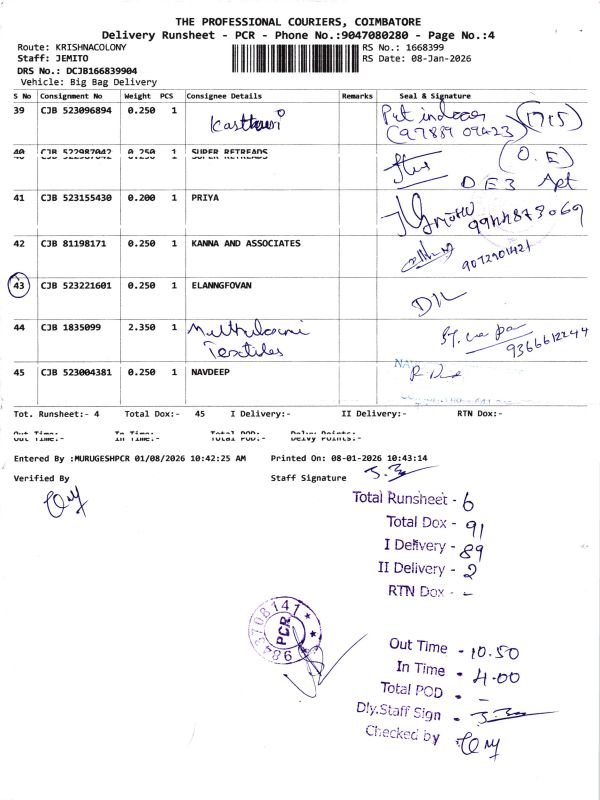 THE PROFESSIONAL COURIERS, COIMBATORE
Delivery Runsheet - PCR - Phone No.:9047080280 - Page No.:4
Route: KRISHNACOLONY RS No.: 1668399
Staff: JEMITO RS Date: 08-Jan-2026
DRS No.: DCJB166839904
Vehicle: Big Bag Delivery
S No Consignment No Weight PCS Consignee Details Remarks Seal & Signature
39 CJB 523096894 0.250 1 Kasthuri
(1715)
40 CJB 522987042 0.250 1 SUPER RETREADS (O.E)
DE3 Apt
41 CJB 523155430 0.200 1 PRIYA
42 CJB 81198171 0.250 1 KANNA AND ASSOCIATES
9072901421
43 CJB 523221601 0.250 1 ELANNGFOVAN
44 CJB 1835099 2.350 1 Muthulaxmi
Textiles 9366612244
45 CJB 523004381 0.250 1 NAVDEEP
Tot. Runsheet:- 4 Total Dox:- 45 I Delivery:- II Delivery:- RTN Dox:-
Out Time:- In Time:- Total POD:- Delvy Points:-
Entered By :MURUGESHPCR 01/08/2026 10:42:25 AM Printed On: 08-01-2026 10:43:14
Verified By Staff Signature
Total Runsheet - 6
Total Dox - 91
I Delivery - 89
II Delivery - 2
RTN Dox - -
9843708141
PCR
Out Time - 10.50
In Time - 4.00
Total POD - -
Dly.Staff Sign -
Checked by